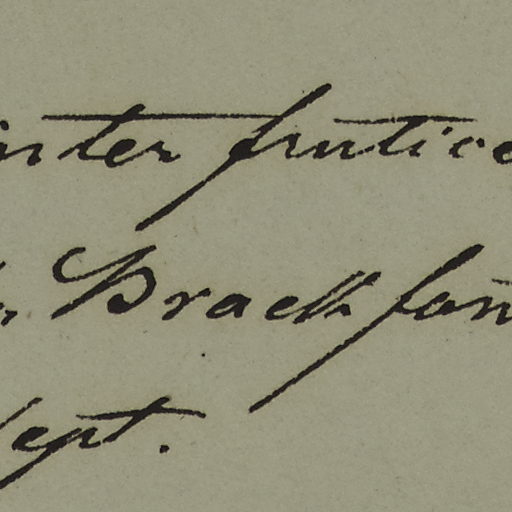 inter frutice
Brackfon
Sept.